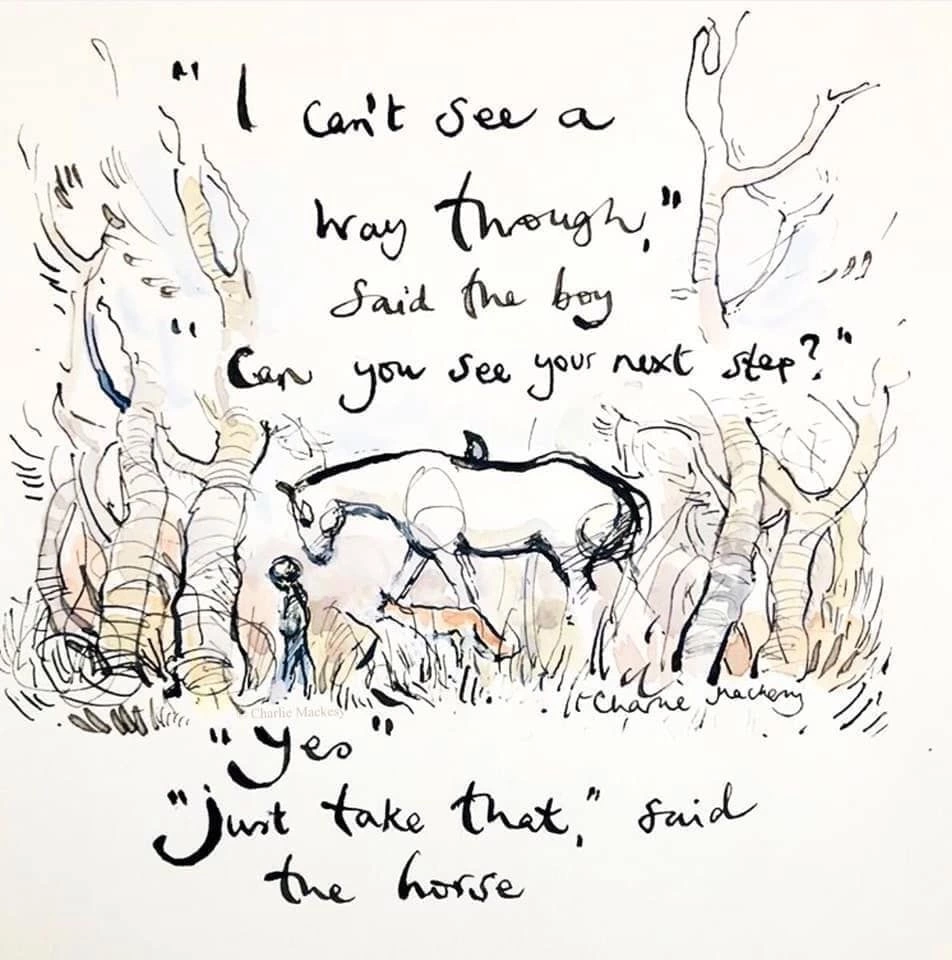 "I can't see a
way through,"
said the boy
"Can you see your next step?"
© Charlie Mackesy
Charlie Mackesy
"Yes"
"Just take that," said
the horse